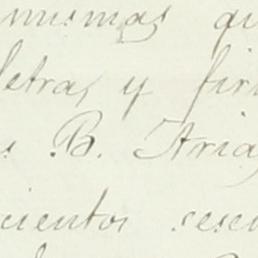 mismas qu
letras y fir
s B. Arias
cientos sese